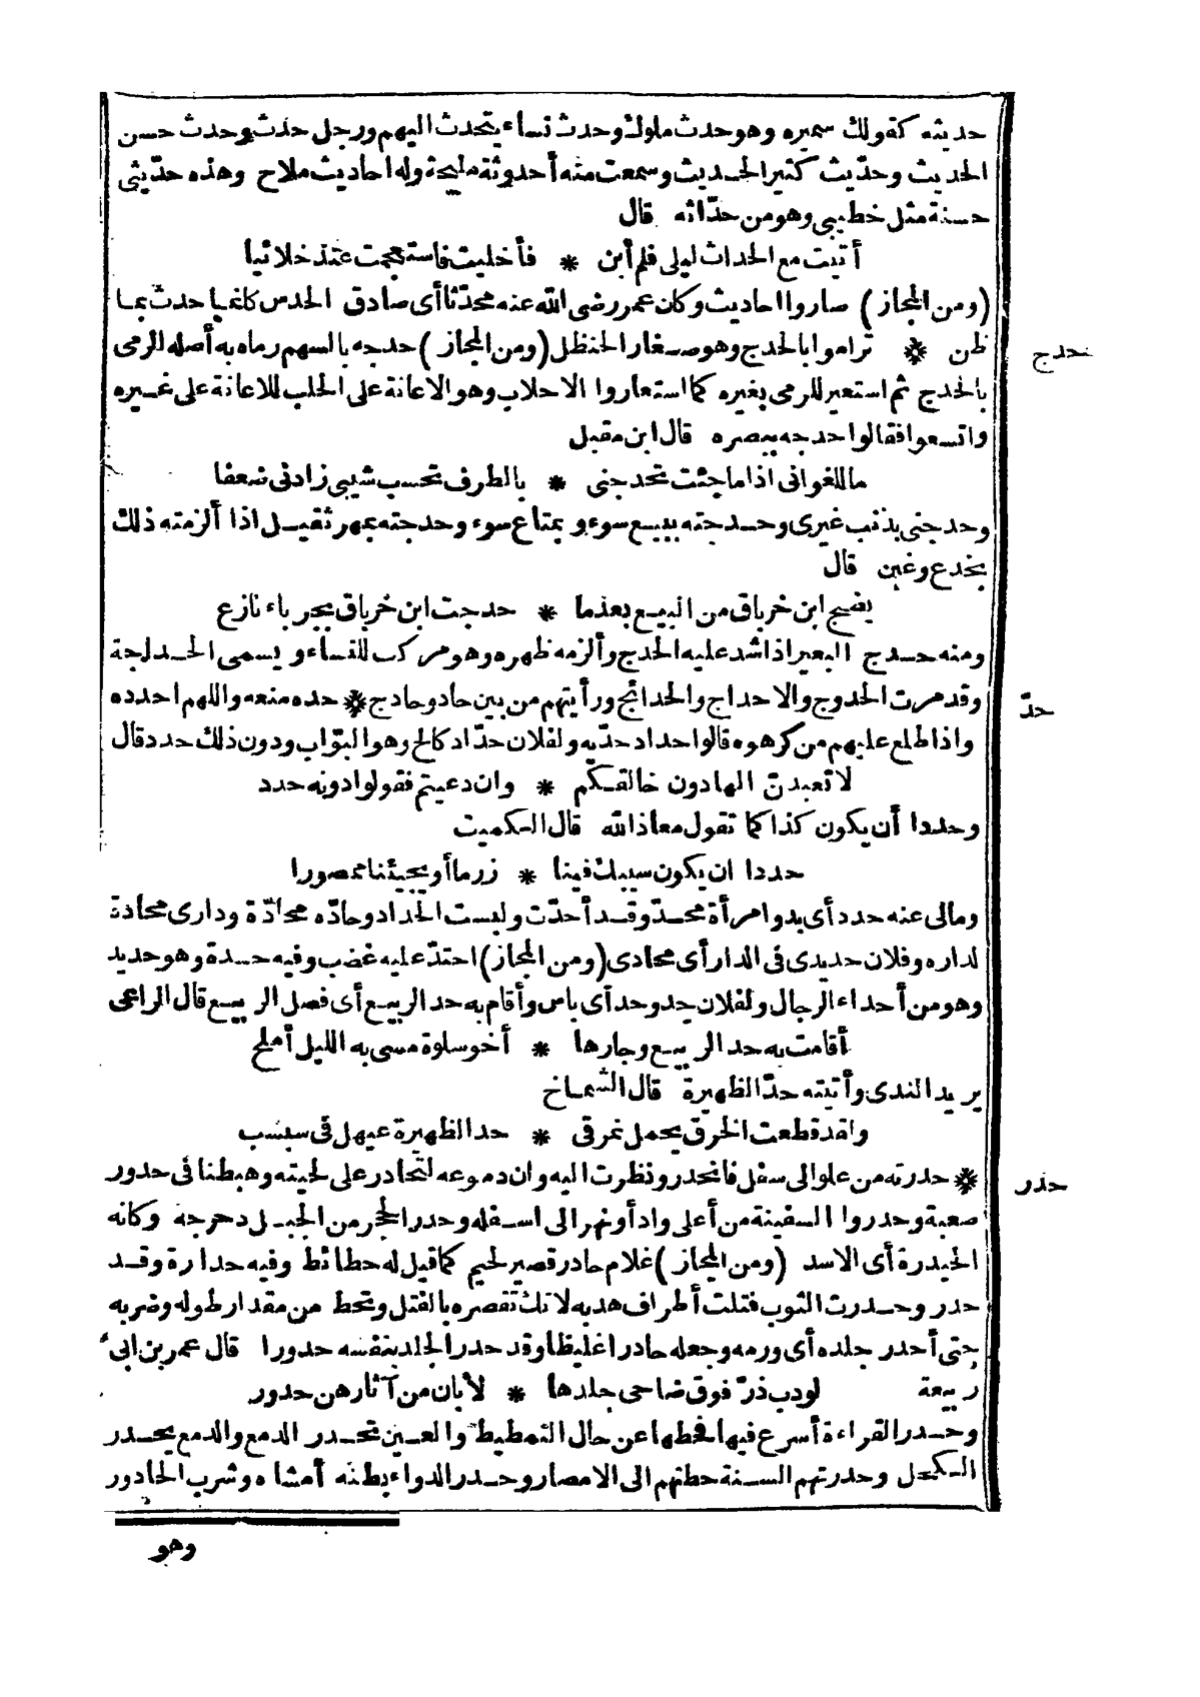 حديثه كقولك سميره وهو حدث ملوك وحدث نساء يتحدث اليهم ورجل حدث وحدث حسن
الحديث وحدّيث كثير الحديث وسمعت منه أحدوثة مليحة وله احاديث ملاح وهذه حدّيثى
حسنة مثل خطيبى وهو من حدّاثه قال
أتيت مع الحداث ليلى فلم أبن * فأخليت فاستعجمت عند خلائيا
(ومن المجاز) صاروا احاديث وكان عمر رضى الله عنه محدّثا أى صادق الحدس كانما حدث بما
ظن * تراموا بالحدج وهو صغار الحنظل (ومن المجاز) حدجه بالسهم رماه به أصله الرمى
بالحدج ثم استعير للرمى بغيره كما استعاروا الاحلاب وهو الاعانة على الحلب للاعانة على غيره
واتسعوا فقالوا حدجه ببصره قال ابن مقبل
ما للغوانى اذا ما جئت تحدجنى * بالطرف تحسب شيبى زادنى ضعفا
وحدجنى بذنب غيرى وحدجته ببيع سوء وبمتاع سوء وحدجته بمهر ثقيل اذا ألزمته ذلك
بخدع وغبن قال
يضج ابن خرباق من البيع بعدما * حدجت ابن خرباق بجرباء نازع
ومنه حدج البعير اذا شد عليه الحدج وألزمه ظهره وهو مركب للنساء ويسمى الحداجة
وقد مرت الحدوج والاحداج والحدائج ورأيتهم من بين حاد وحادج * حده منعه واللهم احدده
واذا طلع عليهم من كرهوه قالوا حداد حدّيه ولفلان حدّاد كالح وهو البوّاب ودون ذلك حدد قال
لا تعبدنّ الها دون خالقكم * وان دعيتم فقولوا دونه حدد
وحددا أن يكون كذا كما تقول معاذ الله قال الكميت
حددا ان يكون سيبك فينا * زرما أو يجيئنا ممصورا
ومالى عنه حدد أى بد وامرأة محدّ وقد أحدّت ولبست الحداد وحادّه محادّة ودارى محادة
لداره وفلان حديدى فى الدار أى محادى (ومن المجاز) احتدّ عليه غضب وفيه حدة وهو حديد
وهو من أحداء الرجال ولفلان جد وحد أى باس وأقام به حد الربيع أى فصل الربيع قال الراعى
أقامت به حد الربيع وجارها * أخو سلوة مسى به الليل أملح
يريد الندى وأتيته حدّ الظهيرة قال الشماخ
واقد قطعت الخرق يحمل نمرقى * حد الظهيرة عيهل فى سبسب
* حدرته من علو الى سفل فانحدر ونظرت اليه وان دموعه لتحادر على لحيته وهبطنا فى حدور
صعبة وحدروا السفينة من أعلى واد أو نهر الى اسفله وحدر الحجر من الجبل دحرجه وكانه
الحيدرة أى الاسد (ومن المجاز) غلام حادر قصير لحيم كما قيل له حطائط وفيه حدارة وقد
حدر وحدرت الثوب فتلت أطراف هدبه لانك تقصره بالفتل وتحط من مقدار طوله وضربه
حتى أحدر جلده أى ورمه وجعله حادرا غليظا وقد حدر الجلد بنفسه حدورا قال عمر بن ابى
ربيعة لو دب ذرّ فوق ضاحى جلدها * لأبان من آثارهن حدور
وحدر القراءة أسرع فيها فحطها عن حال التمطيط والعين تحدر الدمع والدمع يحدر
الكحل وحدرتهم السنة حطتهم الى الامصار وحدر الدواء بطنه أمشاه وشرب الحادور
وهو
حدج
حدّ
حدر